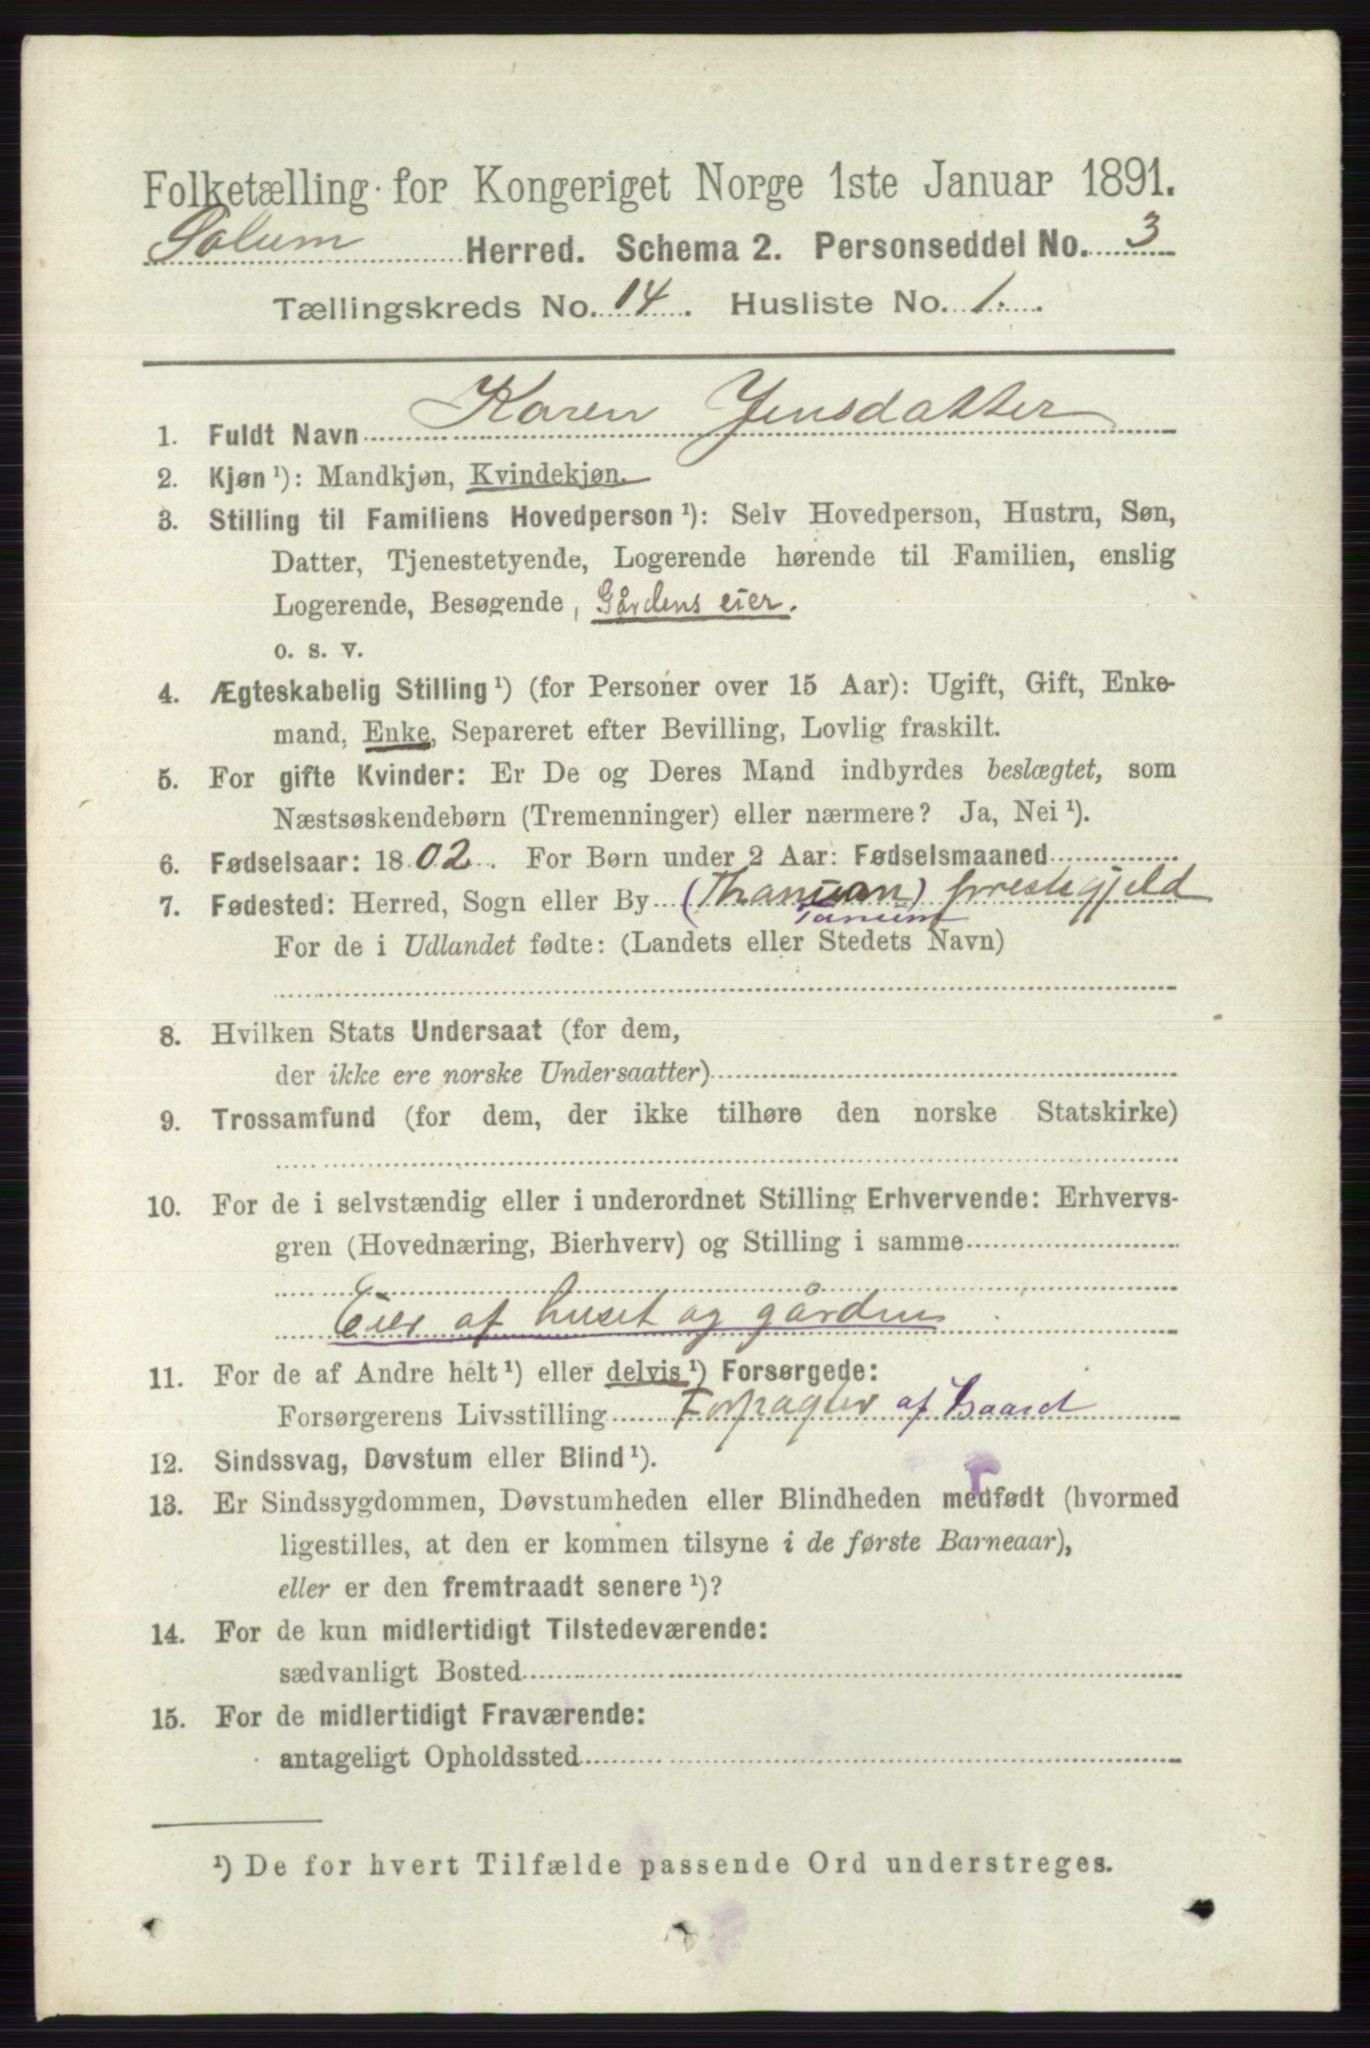 Folketælling for Kongeriget Norge 1ste Januar 1891.
Solum Herred. Schema 2. Personseddel No. 3
Tællingskreds No. 14. Husliste No. 1.
1. Fuldt Navn Karen Jensdatter
2. Kjøn ¹): Mandkjøn, Kvindekjøn.
3. Stilling til Familiens Hovedperson ¹): Selv Hovedperson, Hustru, Søn,
Datter, Tjenestetyende, Logerende hørende til Familien, enslig
Logerende, Besøgende, Gårdens eier.
o. s. v.
4. Ægteskabelig Stilling ¹) (for Personer over 15 Aar): Ugift, Gift, Enke-
mand, Enke, Separeret efter Bevilling, Lovlig fraskilt.
5. For gifte Kvinder: Er De og Deres Mand indbyrdes beslægtet, som
Næstsøskendebørn (Tremenninger) eller nærmere? Ja, Nei ¹).
6. Fødselsaar: 1802. For Børn under 2 Aar: Fødselsmaaned
7. Fødested: Herred, Sogn eller By (Thanum) prestegjeld
Tanum
For de i Udlandet fødte: (Landets eller Stedets Navn)
8. Hvilken Stats Undersaat (for dem,
der ikke ere norske Undersaatter)
9. Trossamfund (for dem, der ikke tilhøre den norske Statskirke)
10. For de i selvstændig eller i underordnet Stilling Erhvervende: Erhvervs-
gren (Hovednæring, Bierhverv) og Stilling i samme
Eier af huset og gården
11. For de af Andre helt ¹) eller delvis ¹) Forsørgede:
Forsørgerens Livsstilling Forpagter af Gaard
12. Sindssvag, Døvstum eller Blind ¹).
13. Er Sindssygdommen, Døvstumheden eller Blindheden medfødt (hvormed
ligestilles, at den er kommen tilsyne i de første Barneaar),
eller er den fremtraadt senere ¹)?
14. For de kun midlertidigt Tilstedeværende:
sædvanligt Bosted
15. For de midlertidigt Fraværende:
antageligt Opholdssted
¹) De for hvert Tilfælde passende Ord understreges.